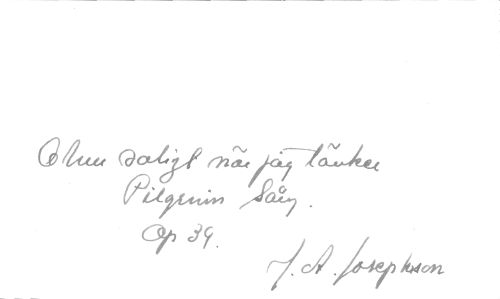 O hur saligt när jag tänker
Pilgrim Sång.
Op 39.
J. A. Josephson